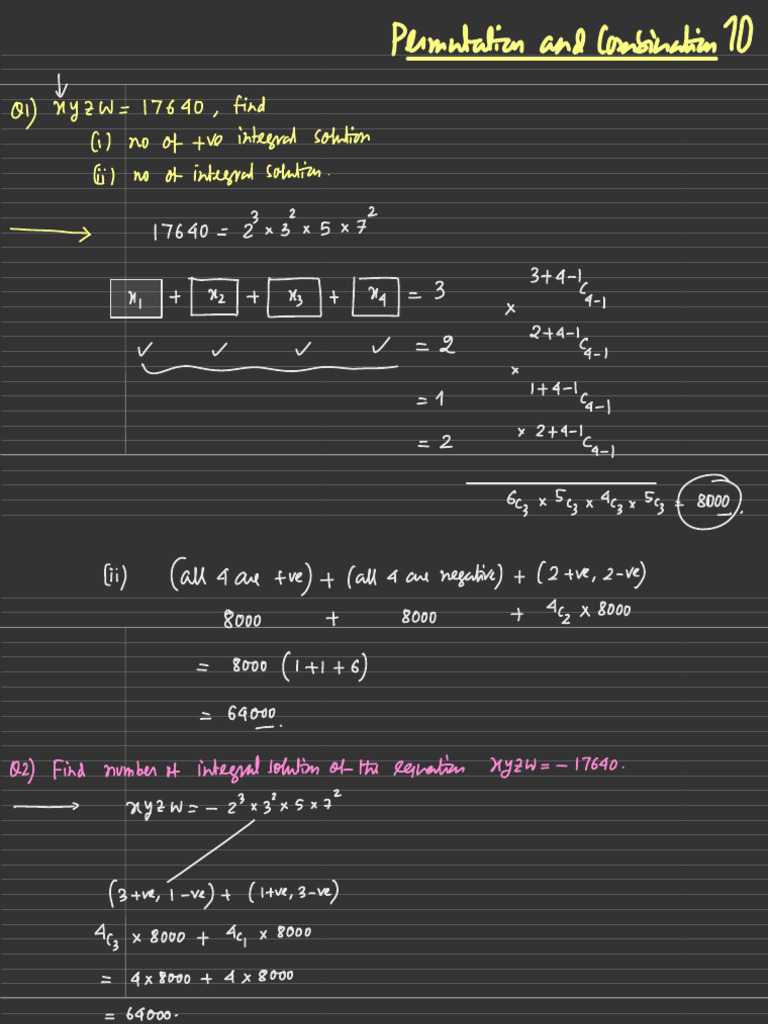 Permutation and Combination 10
Q1) xyzw = 17640, find
(i) no of +ve integral solution
(ii) no of integral solution.
17640 = 2³ × 3² × 5 × 7²
x₁ + x₂ + x₃ + x₄ = 3 3+4-1C4-1
×
✓ ✓ ✓ ✓ = 2 2+4-1C4-1
×
= 1 1+4-1C4-1
= 2 × 2+4-1C4-1
6C₃ × 5C₃ × 4C₃ × 5C₃ = 8000.
(ii) (all 4 are +ve) + (all 4 are negative) + (2 +ve, 2-ve)
8000 + 8000 + 4C₂ × 8000
= 8000 (1+1+6)
= 64000.
Q2) Find number of integral solution of the equation xyzw = - 17640.
xyzw = - 2³ × 3² × 5 × 7²
(3+ve, 1-ve) + (1+ve, 3-ve)
4C₃ × 8000 + 4C₁ × 8000
= 4 × 8000 + 4 × 8000
= 64000.